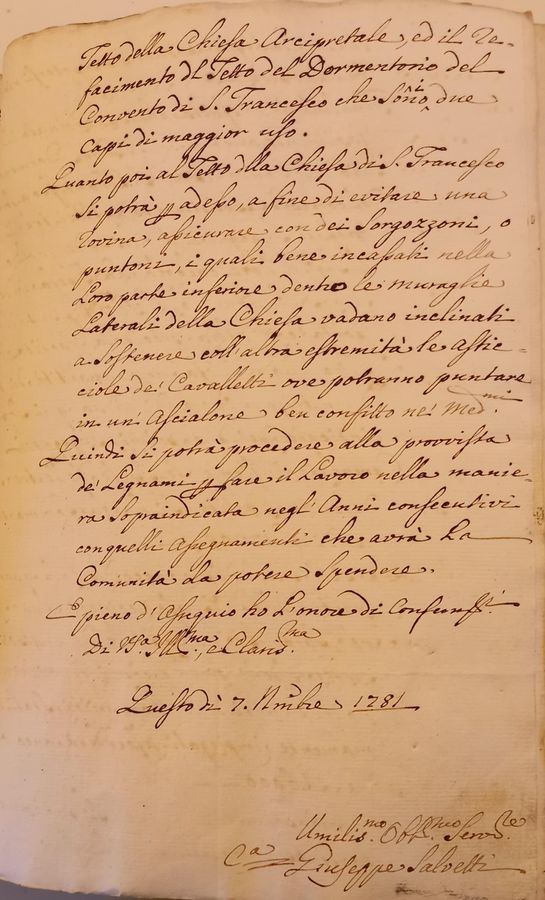 Tetto della Chiesa Arcipretale, ed il Re-
facimento del Tetto del Dormentorio del
Convento di S. Francesco che sono i due
capi di maggior uso.
Quanto poi al Tetto della Chiesa di S. Francesco
si potrà p adesso, a fine di evitare una
rovina, assicurare con dei Sorgozzoni, o
puntoni, i quali bene incassati nella
loro parte inferiore dentro le muraglie
Laterali della Chiesa vadano inclinati
a sostenere coll'altra estremità le astic-
ciole de' Cavalletti ove potranno puntare
in un' Ascialone ben confitto ne' Med.mi
Quindi si potrà procedere alla provvista
de' Legnami p fare il Lavoro nella manie-
ra sopraindicata negl' Anni consecutivi
con quelli Assegnamenti che avrà la
Comunità da potere spendere.
E pieno d'Ossequio ho l'onore di
Di VS.a Ill.ma, e Claris.ma
Questo dì 7. Nmbre 1781
Umilis.mo Obb.mo Serv.re
C.a Giuseppe Salvetti